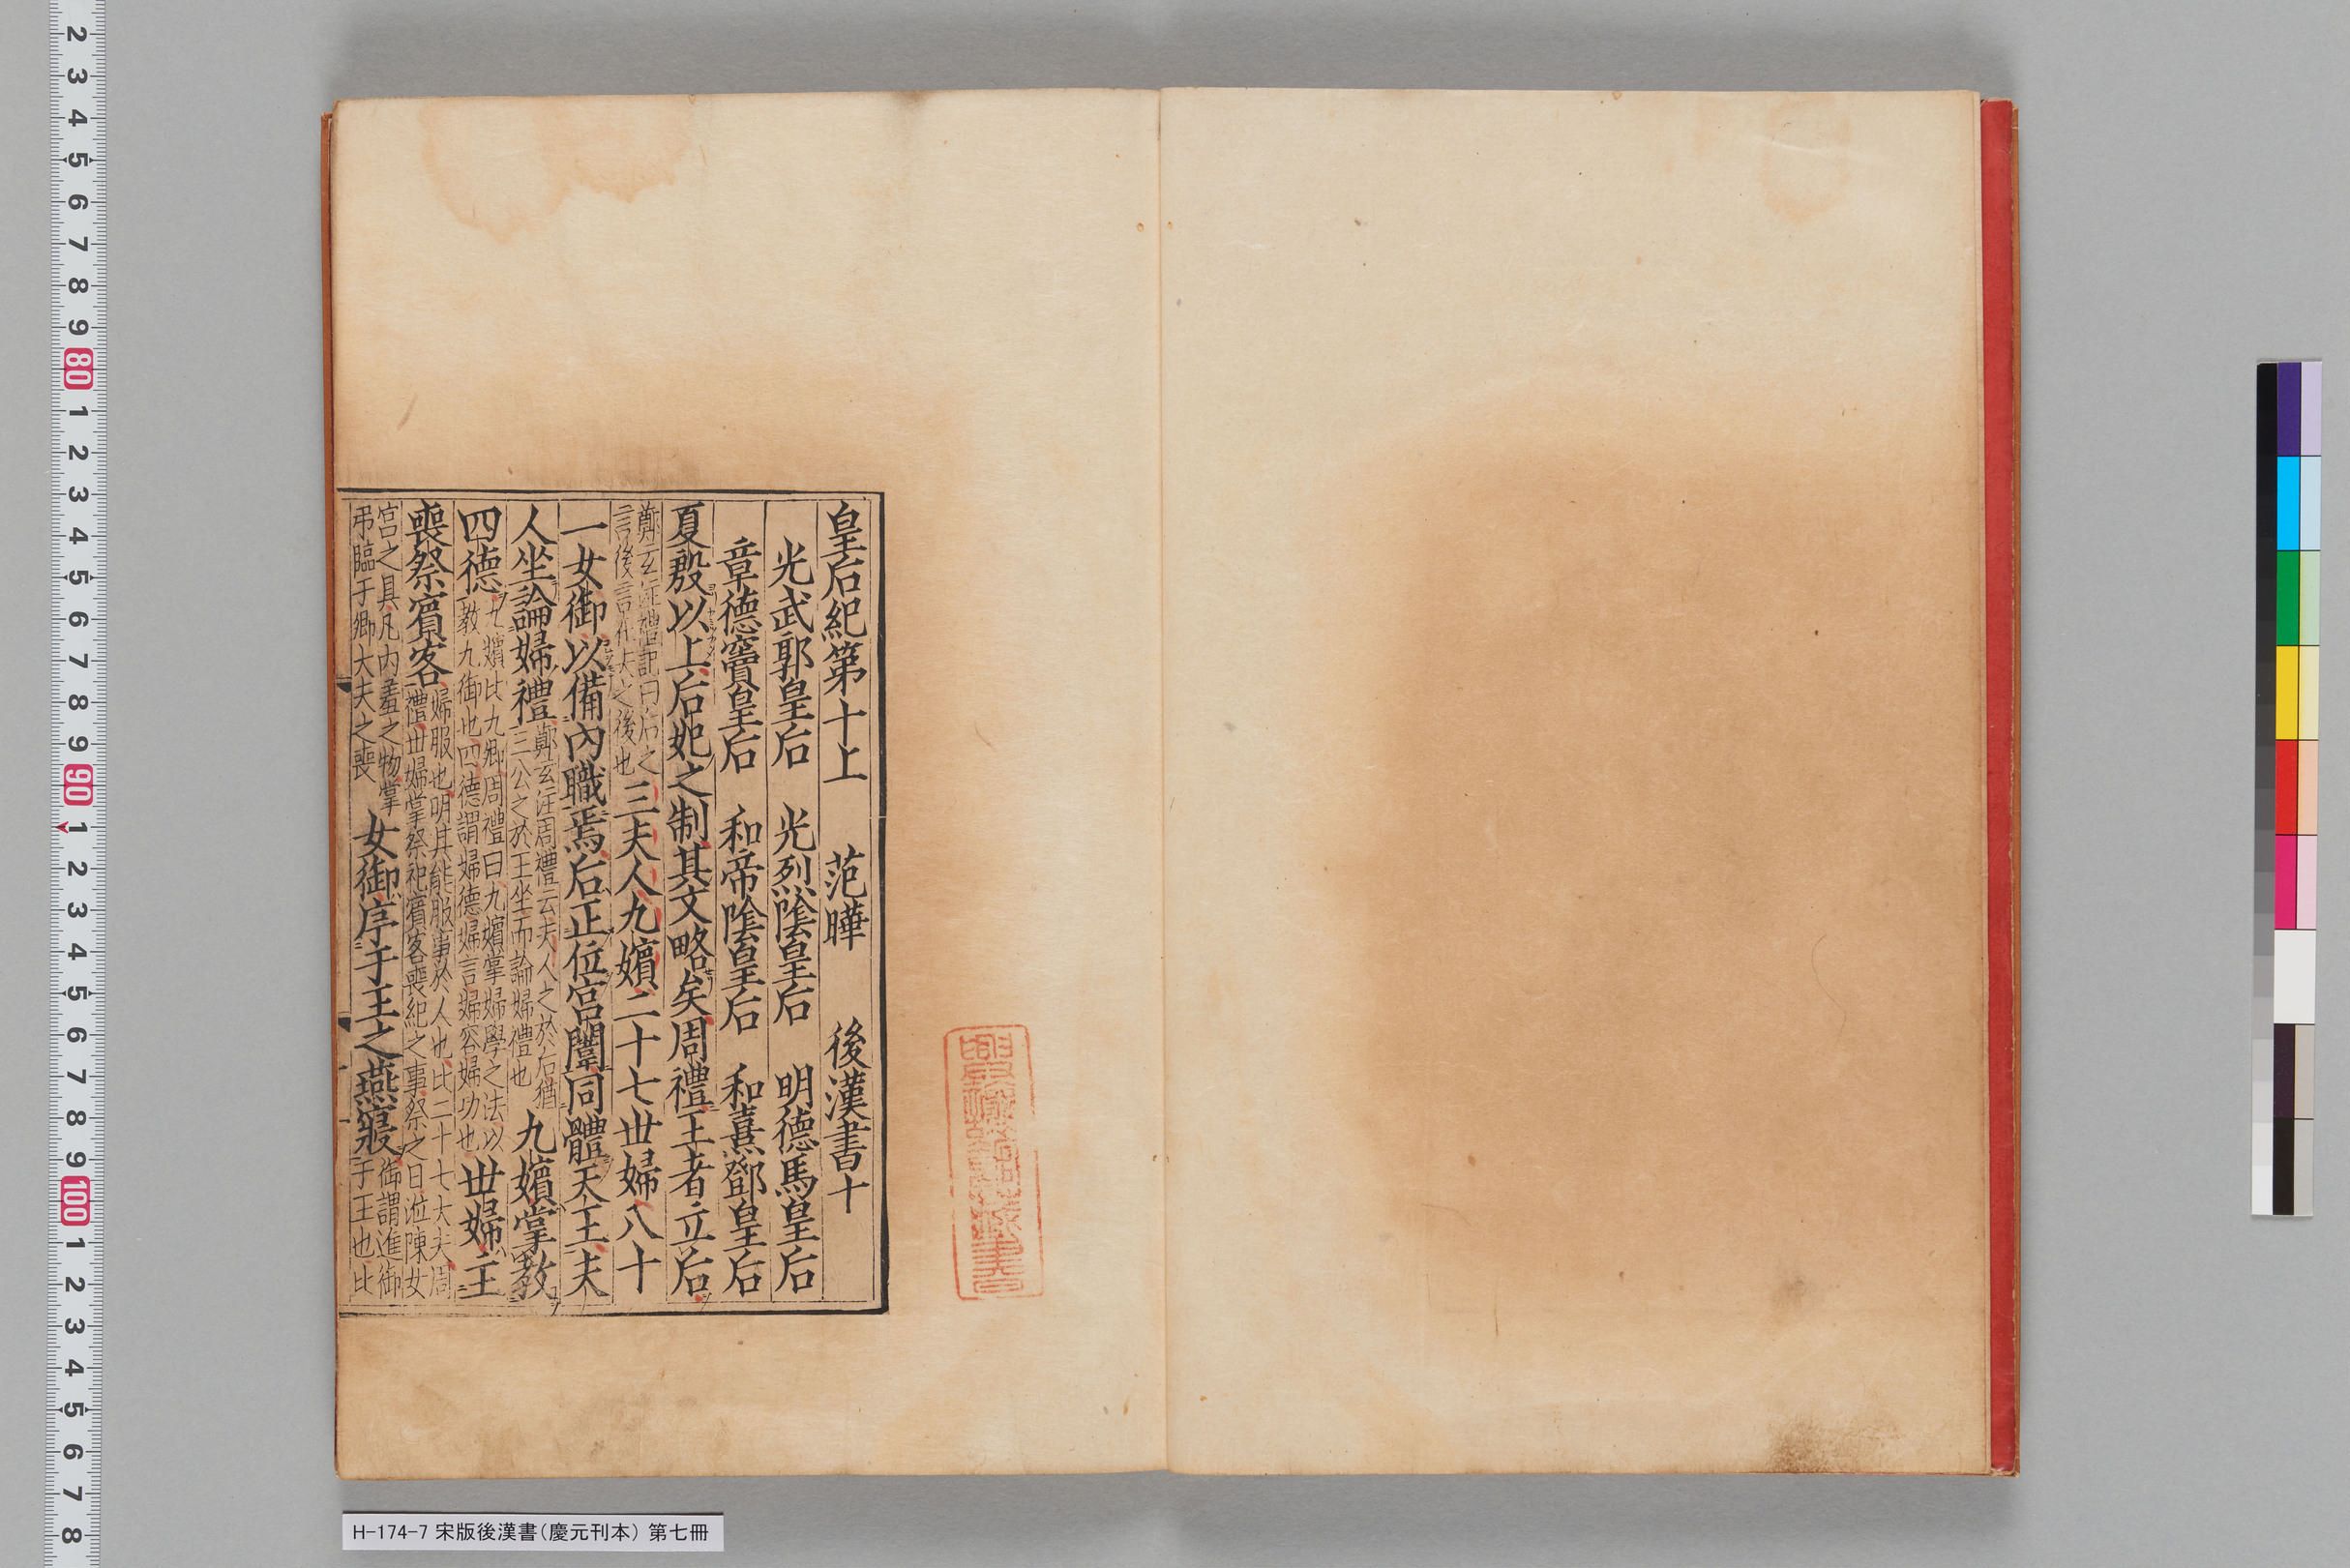 皇后紀第十上　范曄　後漢書十
光武郭皇后　光烈陰皇后　明德馬皇后
章德竇皇后　和帝陰皇后　和熹鄧皇后
夏殷以上后妃之制其文略矣周禮王者立后
鄭玄注禮記曰后之
言後言在夫之後也
三夫人九嬪二十七世婦八十
一女御以備內職焉后正位宮闈同體天王夫
人坐論婦禮
鄭玄注周禮云夫人之於后猶
三公之於王坐而論婦禮也
九嬪掌教
四德
九嬪比九卿周禮曰九嬪掌婦學之法以
教九御也四德謂婦德婦言婦容婦功也
世婦主
喪祭賓客
婦服也明其能服事於人也比二十七大夫周
禮世婦掌祭祀賓客喪紀之事祭之日涖陳女
宮之具凡內羞之物掌
弔臨于卿大夫之喪
女御序于王之燕寢
御謂進御
于王也比
H-174-7 宋版後漢書(慶元刊本) 第七冊
2
3
4
5
6
7
8
9
80
1
2
3
4
5
6
7
8
9
90
1
2
3
4
5
6
7
8
9
100
1
2
3
4
5
6
7
8